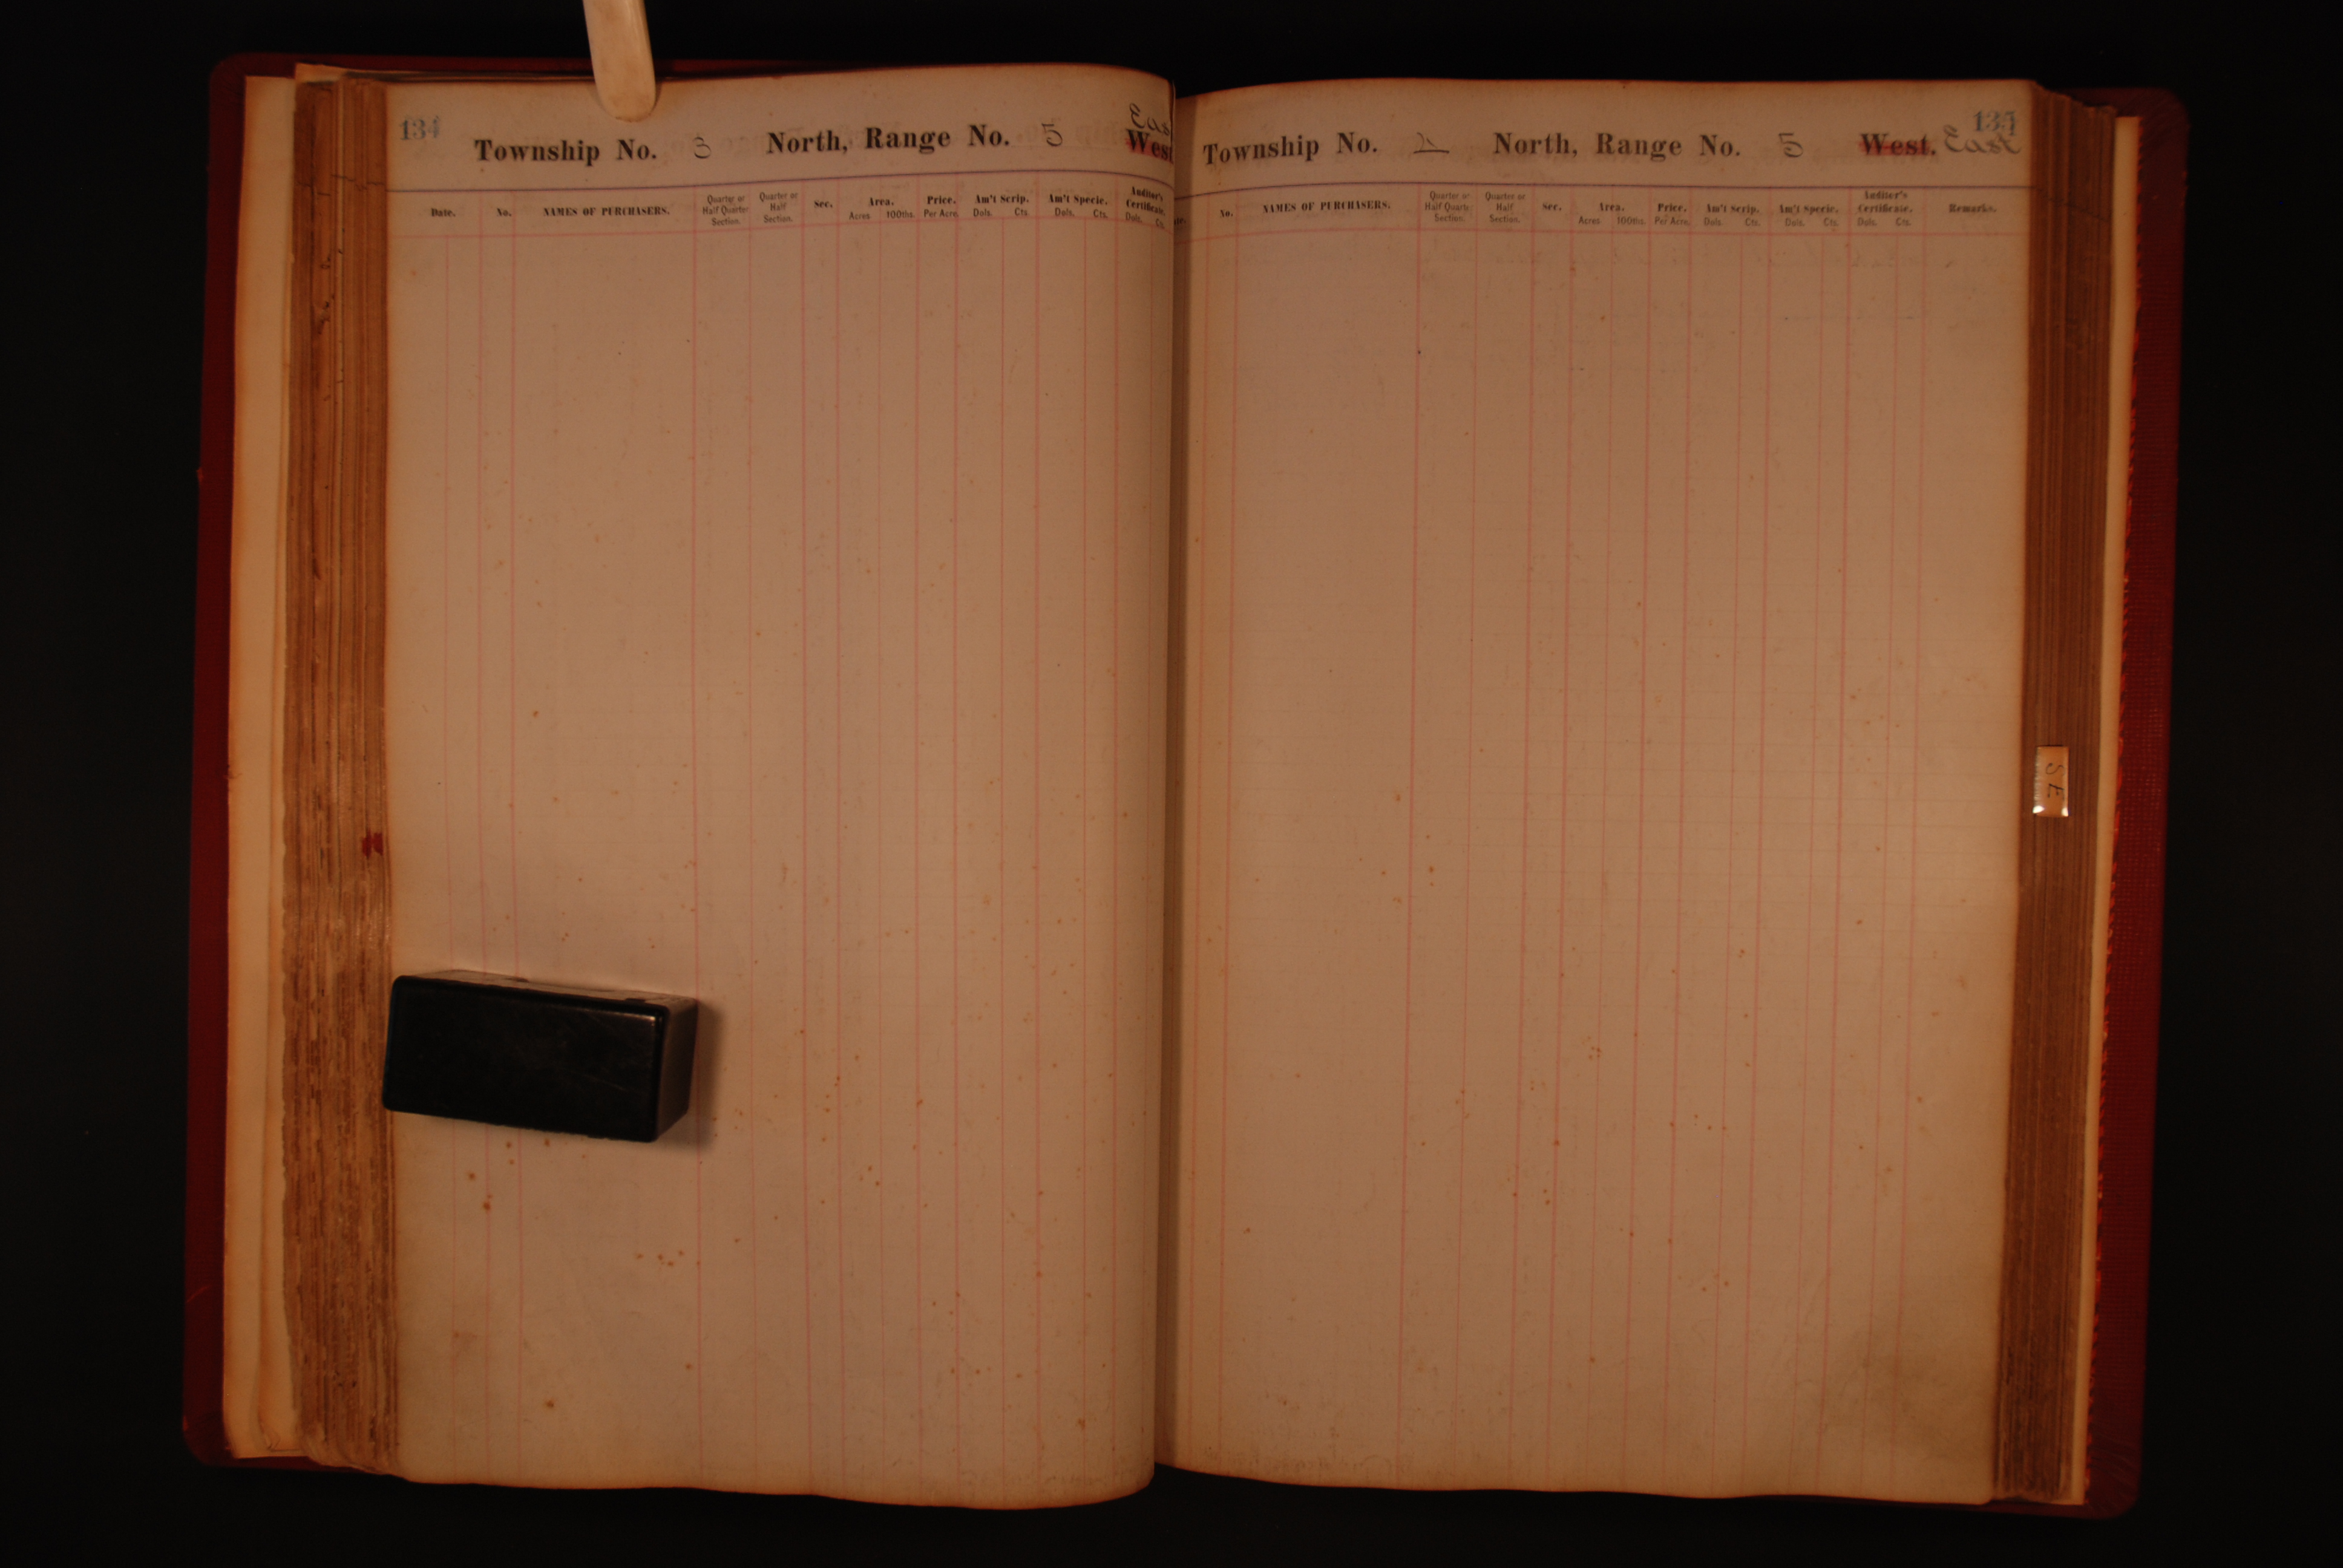 134
Township No. 3 North, Range No. 5 West East
Date. No. NAMES OF PURCHASERS. Quarter or Half Quarter Section. Quarter or Half Section. Sec. Area. Acres 100ths. Price. Per Acre. Am't Scrip. Dols. Cts. Am't Specie. Dols. Cts. Auditor's Certificate. Dols. Cts.
135
Township No. 2 North, Range No. 5 West. East
No. NAMES OF PURCHASERS. Quarter or Half Quarter Section. Quarter or Half Section. Sec. Area. Acres 100ths. Price. Per Acre. Am't Scrip. Dols. Cts. Am't Specie. Dols. Cts. Auditor's Certificate. Dols. Cts. Remarks.
5 E